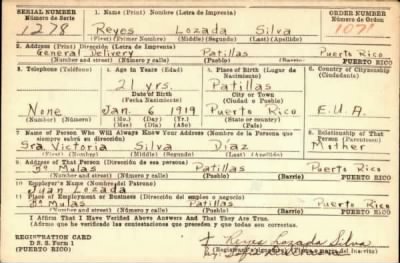 SERIAL NUMBER 1. Name (Print) Nombre (Letra de Imprenta) ORDER NUMBER
Número de Serie Número de Orden
1278 Reyes Lozada Silva
(First) (Primer Nombre) (Middle) (Segundo) (Last) (Apellido)
2. Address (Print) Dirección (Letra de Imprenta)
General Delivery Patillas Puerto Rico
(Number and street) (Número y calle) (Town) (Pueblo) (Barrio) PUERTO RICO
3. Telephone (Teléfono) 4. Age in Years (Edad) 5. Place of Birth (Lugar de Nacimiento) 6. Country of Citizenship (Ciudadanía)
21 yrs. Patillas
Date of Birth City or Town
(Fecha de Nacimiento) (Ciudad o Pueblo)
None Jan. 6 1919 Puerto Rico E.U.A.
(Number) (Número) (Mo.) (Day) (Día) (Yr.) (Año) (State or country) (Country) (País)
7. Name of Person Who Will Always Know Your Address (Nombre de la Persona que siempre sabrá su dirección) 8. Relationship of That Person (Parentesco)
Sra. Victoria Silva Diaz Mother
(First) (Middle) (Segundo) (Last) (Apellido)
9. Address of That Person (Dirección de esa persona)
Bo. Mulas Patillas Puerto Rico
(Number and street) (Número y calle) (Town) (Pueblo) (Barrio) PUERTO RICO
10. Employer's Name (Nombre del Patrono)
Juan Lozada
11. Place of Employment or Business (Dirección del empleo o negocio)
Bo. Mulas Patillas Puerto Rico
(Number and street) (Número y calle) (Town) (Pueblo) (Barrio) PUERTO RICO
I Affirm That I Have Verified Above Answers And That They Are True.
(Afirmo que he verificado las contestaciones que preceden y que todas son correctas.)
REGISTRATION CARD
D. S. S. Form 1
(PUERTO RICO)
Reyes Lozada Silva